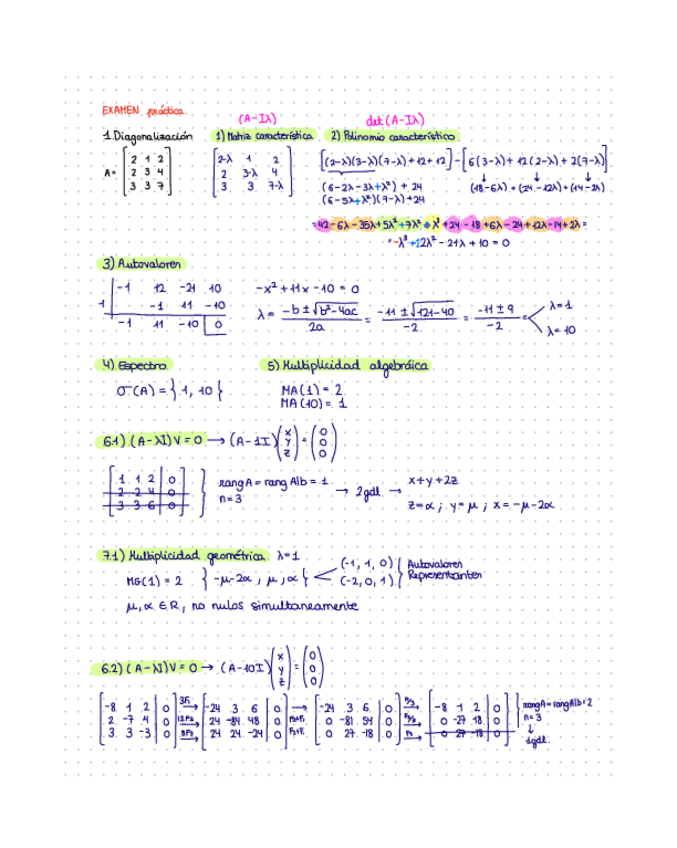 EXAMEN práctica.
(A-Iλ)
det(A-Iλ)
1. Diagonalización
1) Matriz característica
2) Polinomio característico
A= [2 1 2; 2 3 4; 3 3 7]
[2-λ 1 2; 2 3-λ 4; 3 3 7-λ]
[(2-λ)(3-λ)(7-λ)+12+12]-[6(3-λ)+12(2-λ)+2(7-λ)]
(6-2λ-3λ+λ²)+24
(18-6λ)+(24-12λ)+(14-2λ)
(6-5λ+λ²)(7-λ)+24
=42-6λ-35λ+5λ²+7λ²-λ³+24-18+6λ-24+12λ-14+2λ=
=-λ³+12λ²-21λ+10=0
3) Autovalores
-1 12 -21 10
1 -1 11 -10
-1 11 -10 0
-x²+11x-10=0
λ= (-b±√(b²-4ac))/2a = (-11±√(121-40))/-2 = (-11±9)/-2 = λ=1
λ=10
4) Espectro
5) Multiplicidad algebráica
σ(A)={1, 10}
MA(1)=2
MA(10)=1
6.1) (A-λI)V=0 → (A-1I)(x y z)=(0 0 0)
[1 1 2 | 0; 2 2 4 | 0; 3 3 6 | 0]
rang A = rang A|b = 1
n=3
→ 2gdl →
x+y+2z
z=α ; y=μ ; x=-μ-2α
7.1) Multiplicidad geométrica λ=1
MG(1)=2 {-μ-2α, μ, α}
(-1, 1, 0)
(-2, 0, 1)
Autovalores
Representantes
μ, α ∈ R, no nulos simultaneamente
6.2) (A-λI)V=0 → (A-10I)(x y z)=(0 0 0)
[-8 1 2 | 0; 2 -7 4 | 0; 3 3 -3 | 0] 3F₁ 12F₂ 8F₃ [-24 3 6 | 0; 24 -84 48 | 0; 24 24 -24 | 0] → F₂+F₁ F₃+F₁ [-24 3 6 | 0; 0 -81 54 | 0; 0 27 -18 | 0] F₁/3 F₂/3 F₃ [-8 1 2 | 0; 0 -27 18 | 0; 0 27 -18 | 0]
rang A = rang A|b = 2
n=3
↓
1gdl.